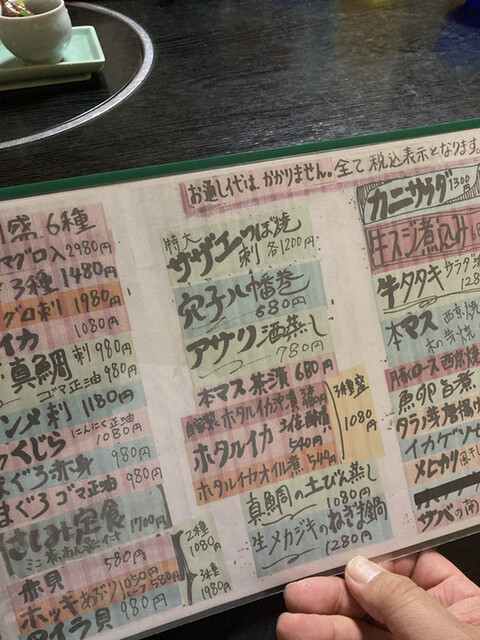 お通し代は、かかりません。全て税込表示となります。
盛 6種
マグロ入 2980円
3種 1480円
グロ刺 1980円
イカ 1080円
真鯛 刺 980円
ゴマ正油 980円
刺 1180円
くじら にんにく正油 1080円
まぐろ赤身 980円
まぐろ ゴマ正油 980円
さしみ定食
ミニ 1700円
赤貝 580円
ホッキ あぶり 1050円
580円
貝 980円
2種 1080円
3種 1980円
特大
サザエ つぼ焼
刺 各1200円
穴子八幡巻
680円
アサリ酒蒸し
780円
本マス茶漬 680円
自家製 ホタルイカ沖漬
ホタルイカ 540円
ホタルイカオイル煮 540円
3種盛
1080円
真鯛の土びん蒸し
1080円
生メカジキのねぎま鍋
1280円
カニサラダ 1300
牛スジ煮込み
牛タタキ サラダ
本マス 西京焼
豚ロース西京焼
魚卵旨煮
タラの芽 唐揚
イカゲソ
メヒカリ
サバの南